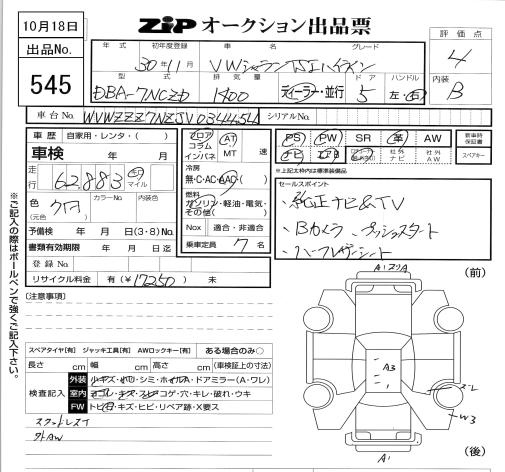 10月18日
ZIP オークション出品票
出品No.
545
評価点
4
内装
B
年式
初年度登録
車名
グレード
30年11月
VWシャラン TSIハイライン
型式
排気量
ドア
ハンドル
DBA-7NCZD
1400
ディーラー・並行
5
左・右
車台No.
WVWZZZ7NZJV034454
シリアルNo.
車歴
自家用・レンタ・( )
車検
年 月
走行
62883
km
マイル
色
(元色)
クロ
カラーNo.
内装色
予備検 年 月 日(3・8)No.
書類有効期限 年 月 日迄
登録No.
リサイクル料金 有(¥17250) 未
フロア
コラム
インパネ
AT
MT
速
冷房
無・C・AC・AAC・( )
燃料
ガソリン・軽油・電気・
その他( )
Nox
適合・非適合
乗車定員
7名
PS
PW
SR
革
AW
ナビ
エアB
社外
ナビ
社外
AW
新車時
保証書
スペアキー
※上記太枠内は標準装備品
セールスポイント
純正ナビ&TV
Bカメラ プッシュスタート
パワーシート
※ご記入の際はボールペンで強くご記入下さい。
[注意事項]
スペアタイヤ[有] ジャッキ工具[有] AWロックキー[有]
ある場合のみ○
長さ cm 幅 cm 高さ cm (車検証上の寸法)
検査記入
外装
小キズ・凹・シミ・ホイルA・ドアミラー(A・ワレ)
室内
ヨゴレ・キズ・スレ・コゲ・穴・キレ・破れ・ウキ
FW
トビ石・キズ・ヒビ・リペア跡・X要ス
スタッドレスT
外AW
(前)
(後)
A3
W3
A1